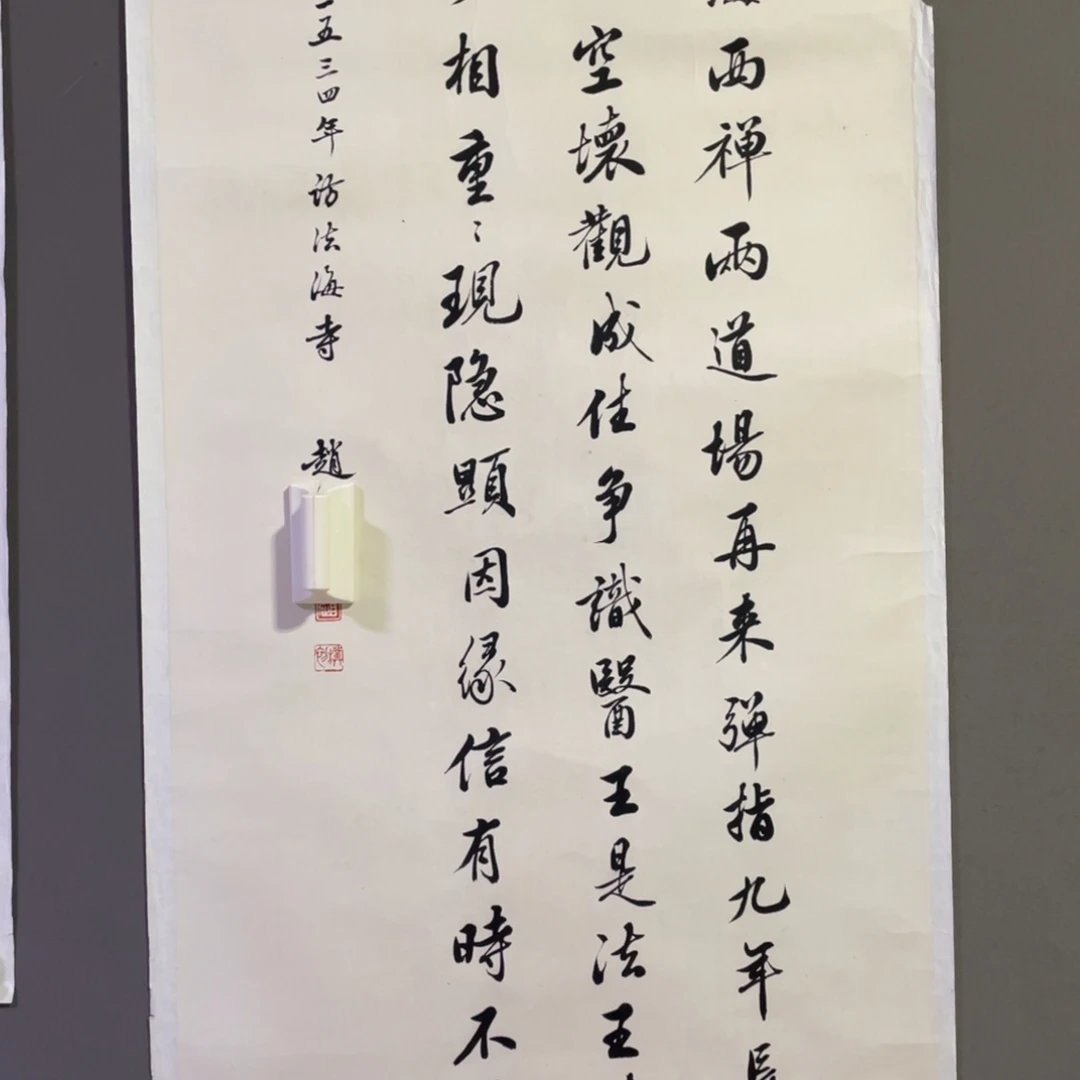 西禅兩道場再来弹指九年長
空壞觀成住争識醫王是法王
相重〻現隐顯因緣信有時不
五三四年访法海寺 趙